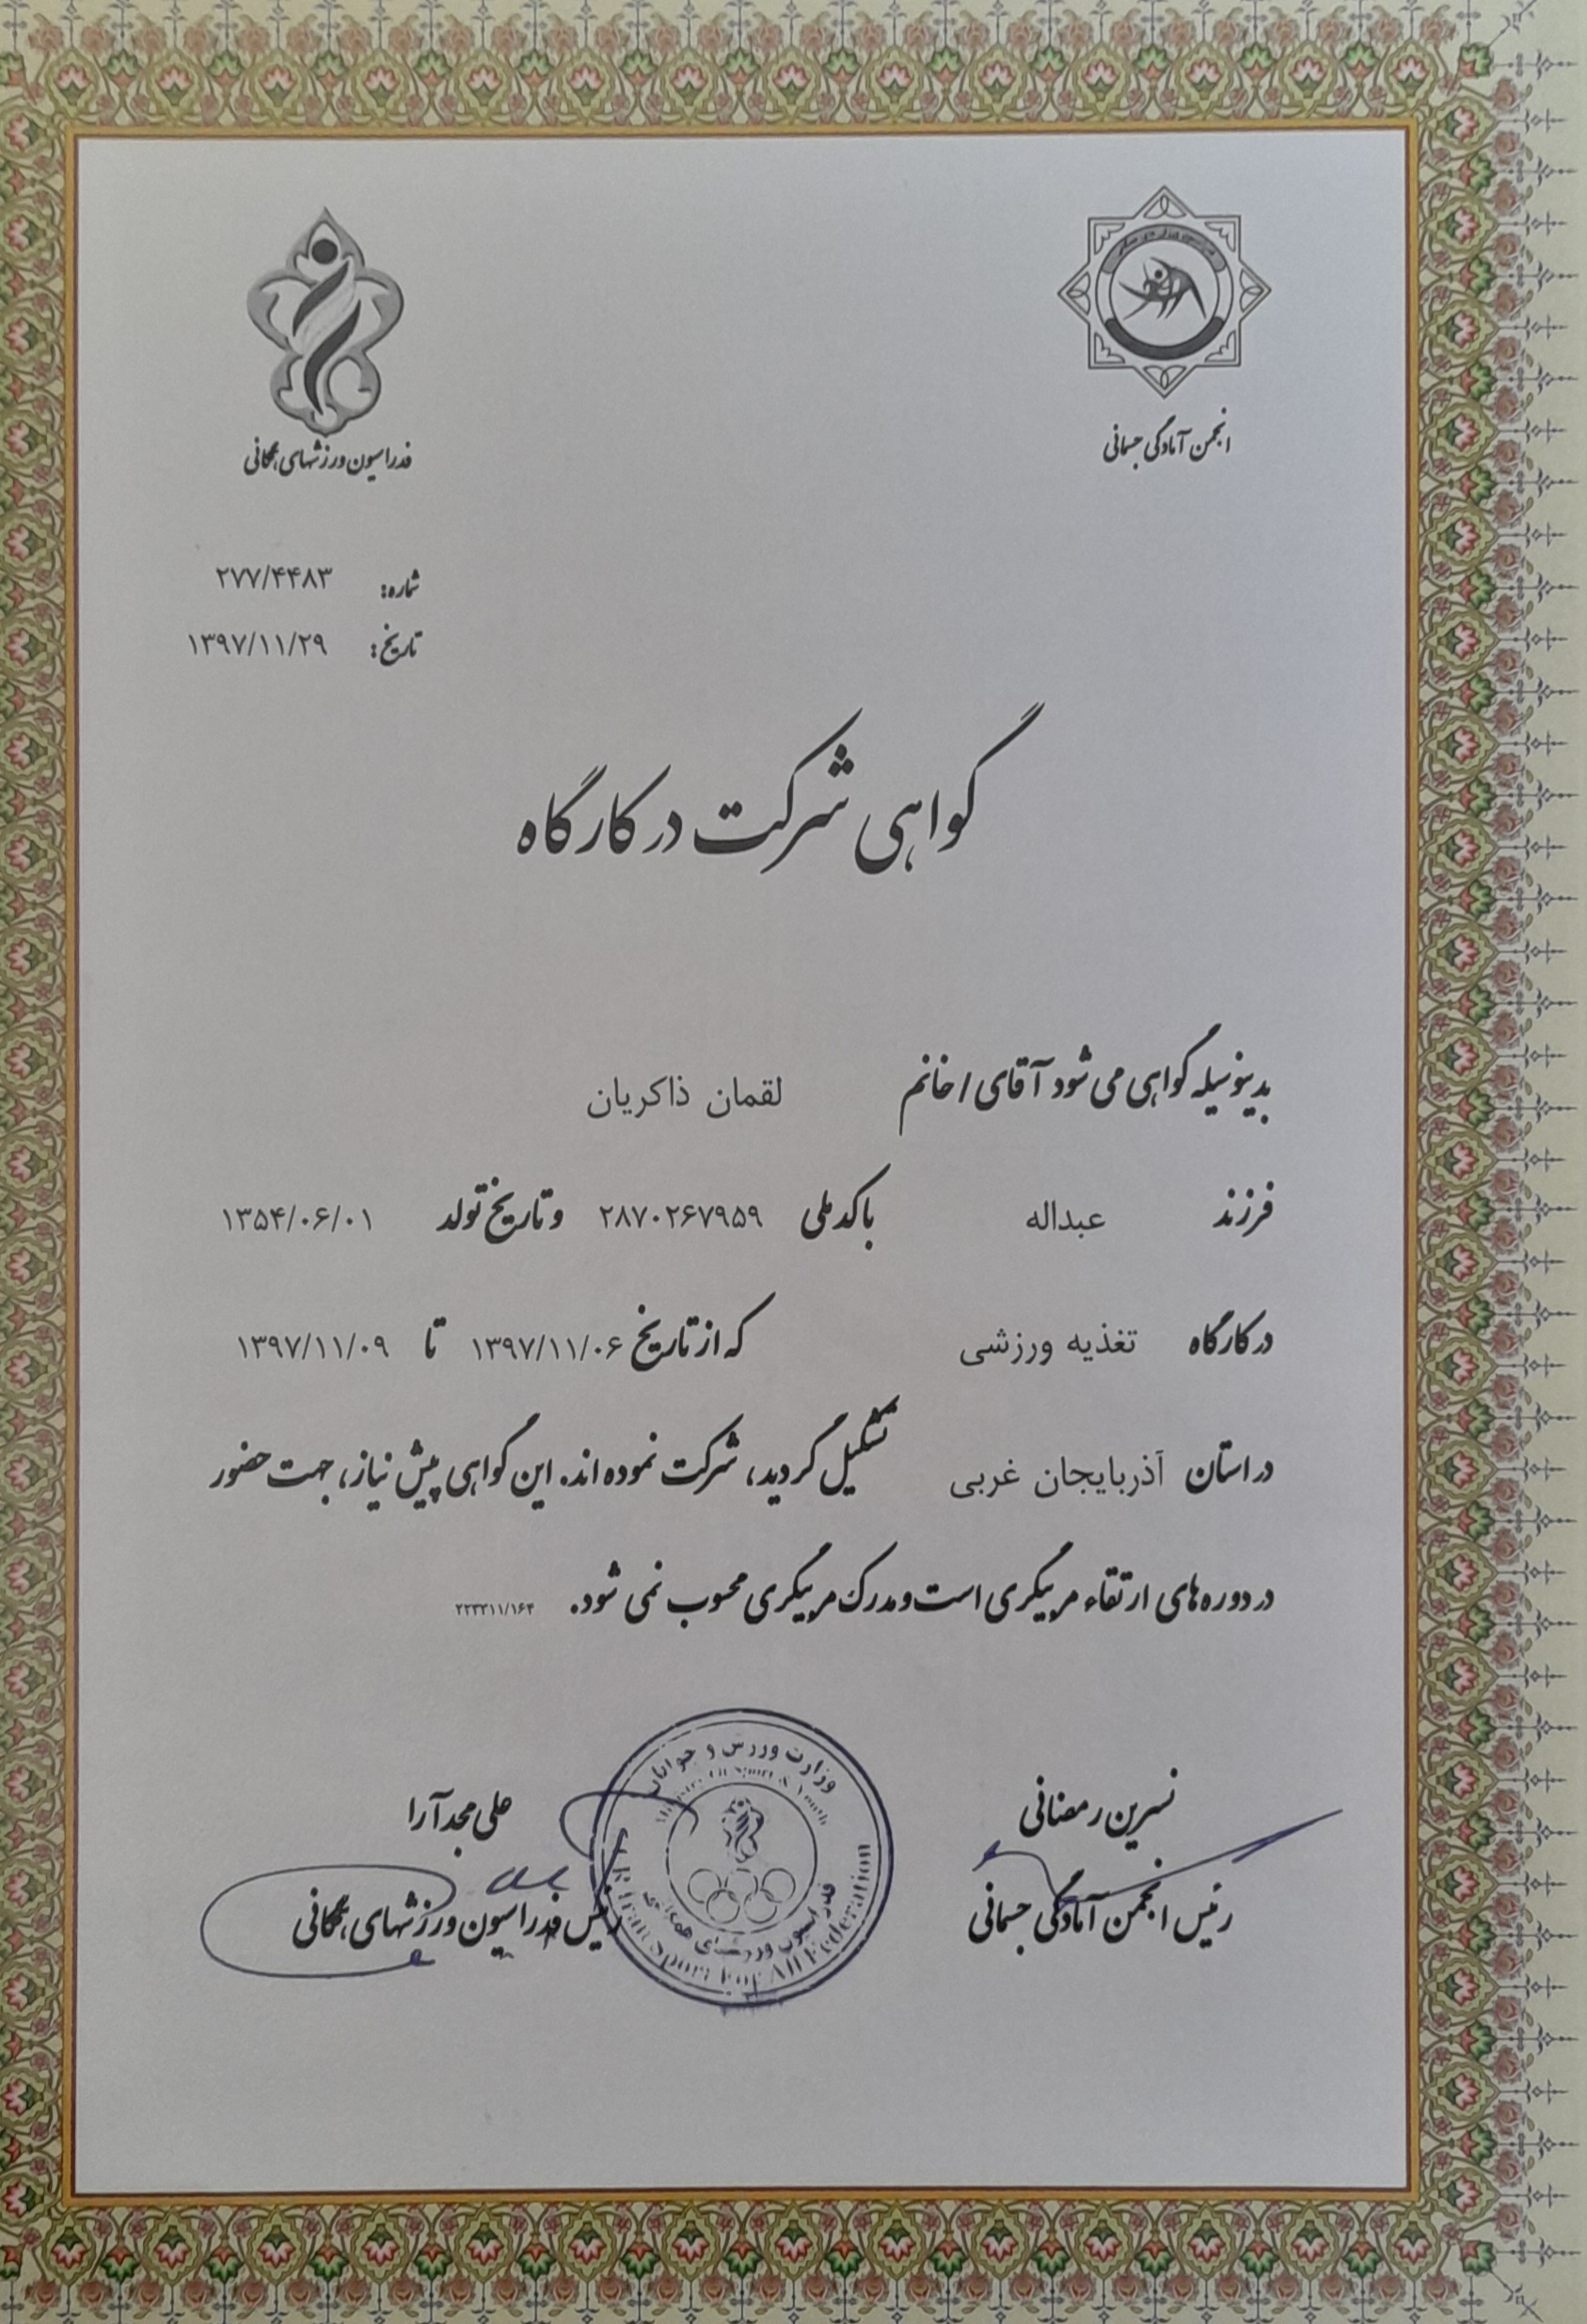 انجمن آمادگی جسمانی
فدراسیون ورزشهای همگانی
شماره: ۲۷۷/۴۴۸۳
تاریخ: ۱۳۹۷/۱۱/۲۹
گواهی شرکت در کارگاه
بدینوسیله گواهی می شود آقای / خانم لقمان ذاکریان
فرزند عبداله با کد ملی ۲۸۷۰۲۶۷۹۵۹ و تاریخ تولد ۱۳۵۴/۰۶/۰۱
در کارگاه تغذیه ورزشی که از تاریخ ۱۳۹۷/۱۱/۰۶ تا ۱۳۹۷/۱۱/۰۹
در استان آذربایجان غربی تشکیل گردید، شرکت نموده اند. این گواهی پیش نیاز، جهت حضور
در دوره های ارتقاء مربیگری است و مدرک مربیگری محسوب نمی شود. ۲۲۳۲۱۱/۱۶۴
نسرین رمضانی
رئیس انجمن آمادگی جسمانی
علی مجدآرا
رئیس فدراسیون ورزشهای همگانی
وزارت ورزش و جوانان
Ministry Of Sport & Youth
فدراسیون ورزشهای همگانی
I.R.Iran Sport For All Federation